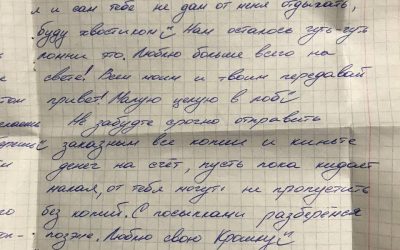 я и сам тебе не дам от меня отдыхать,
буду хвостиком :) Нам осталось чуть-чуть
помни это. Люблю больше всего на
свете! Всем моим и твоим передавай
привет! Малую целую в лоб :)
Не забудьте срочно отправить
заказным все копии и киньте
денег на счёт, пусть пока кидает
малая, от тебя могут не пропустить
без копий. С посылками разберёмся
позже. Люблю свою Крошку :)